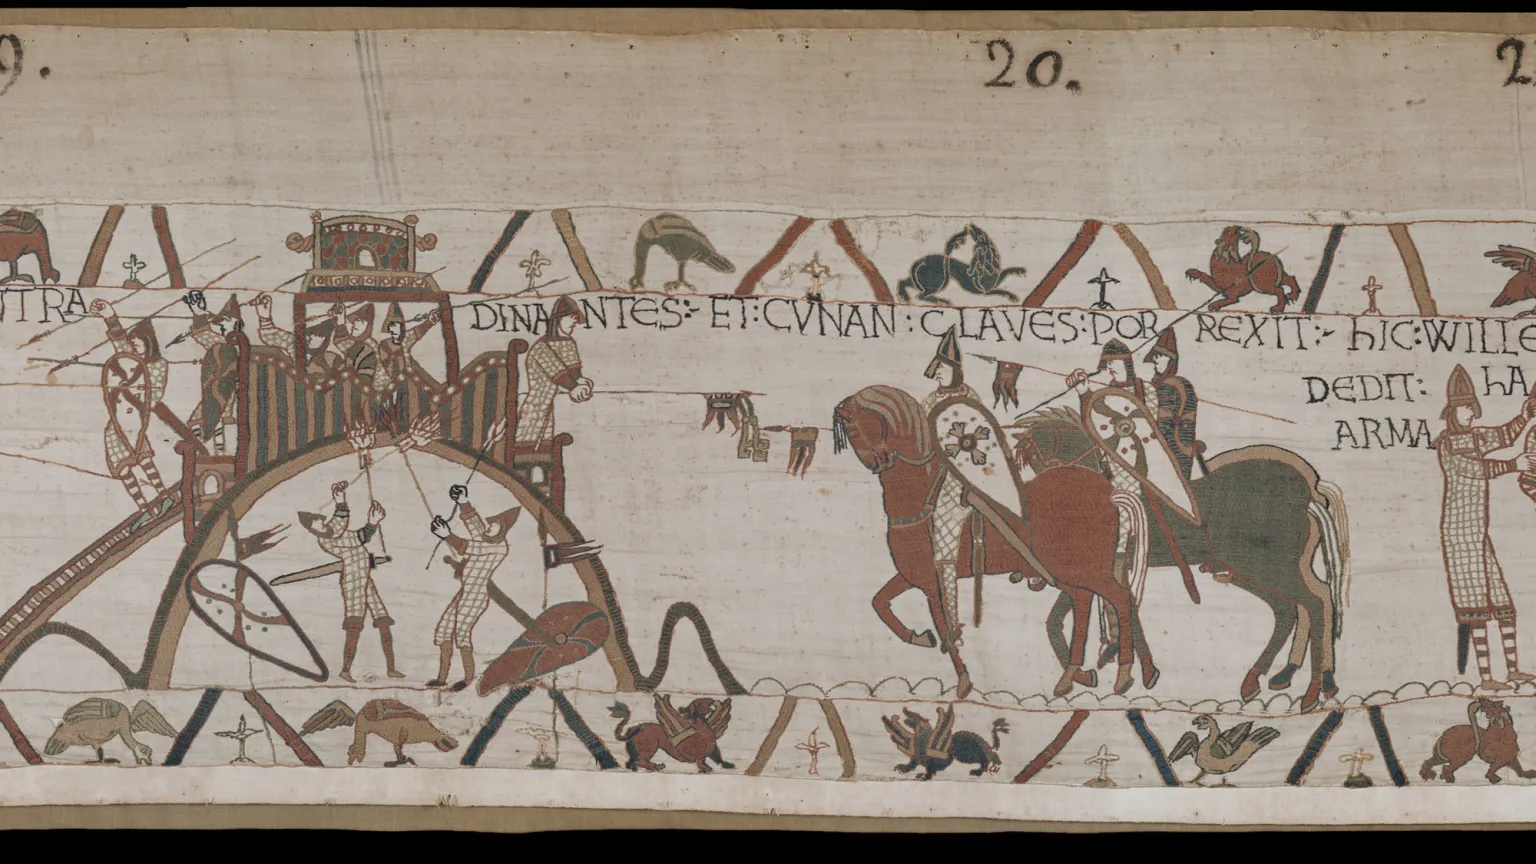 9. 20. 2
NTRA DINANTES: ET: CVNAN: CLAVES: PORREXIT: hIC: WILLE
DEDIT: hA
ARMA